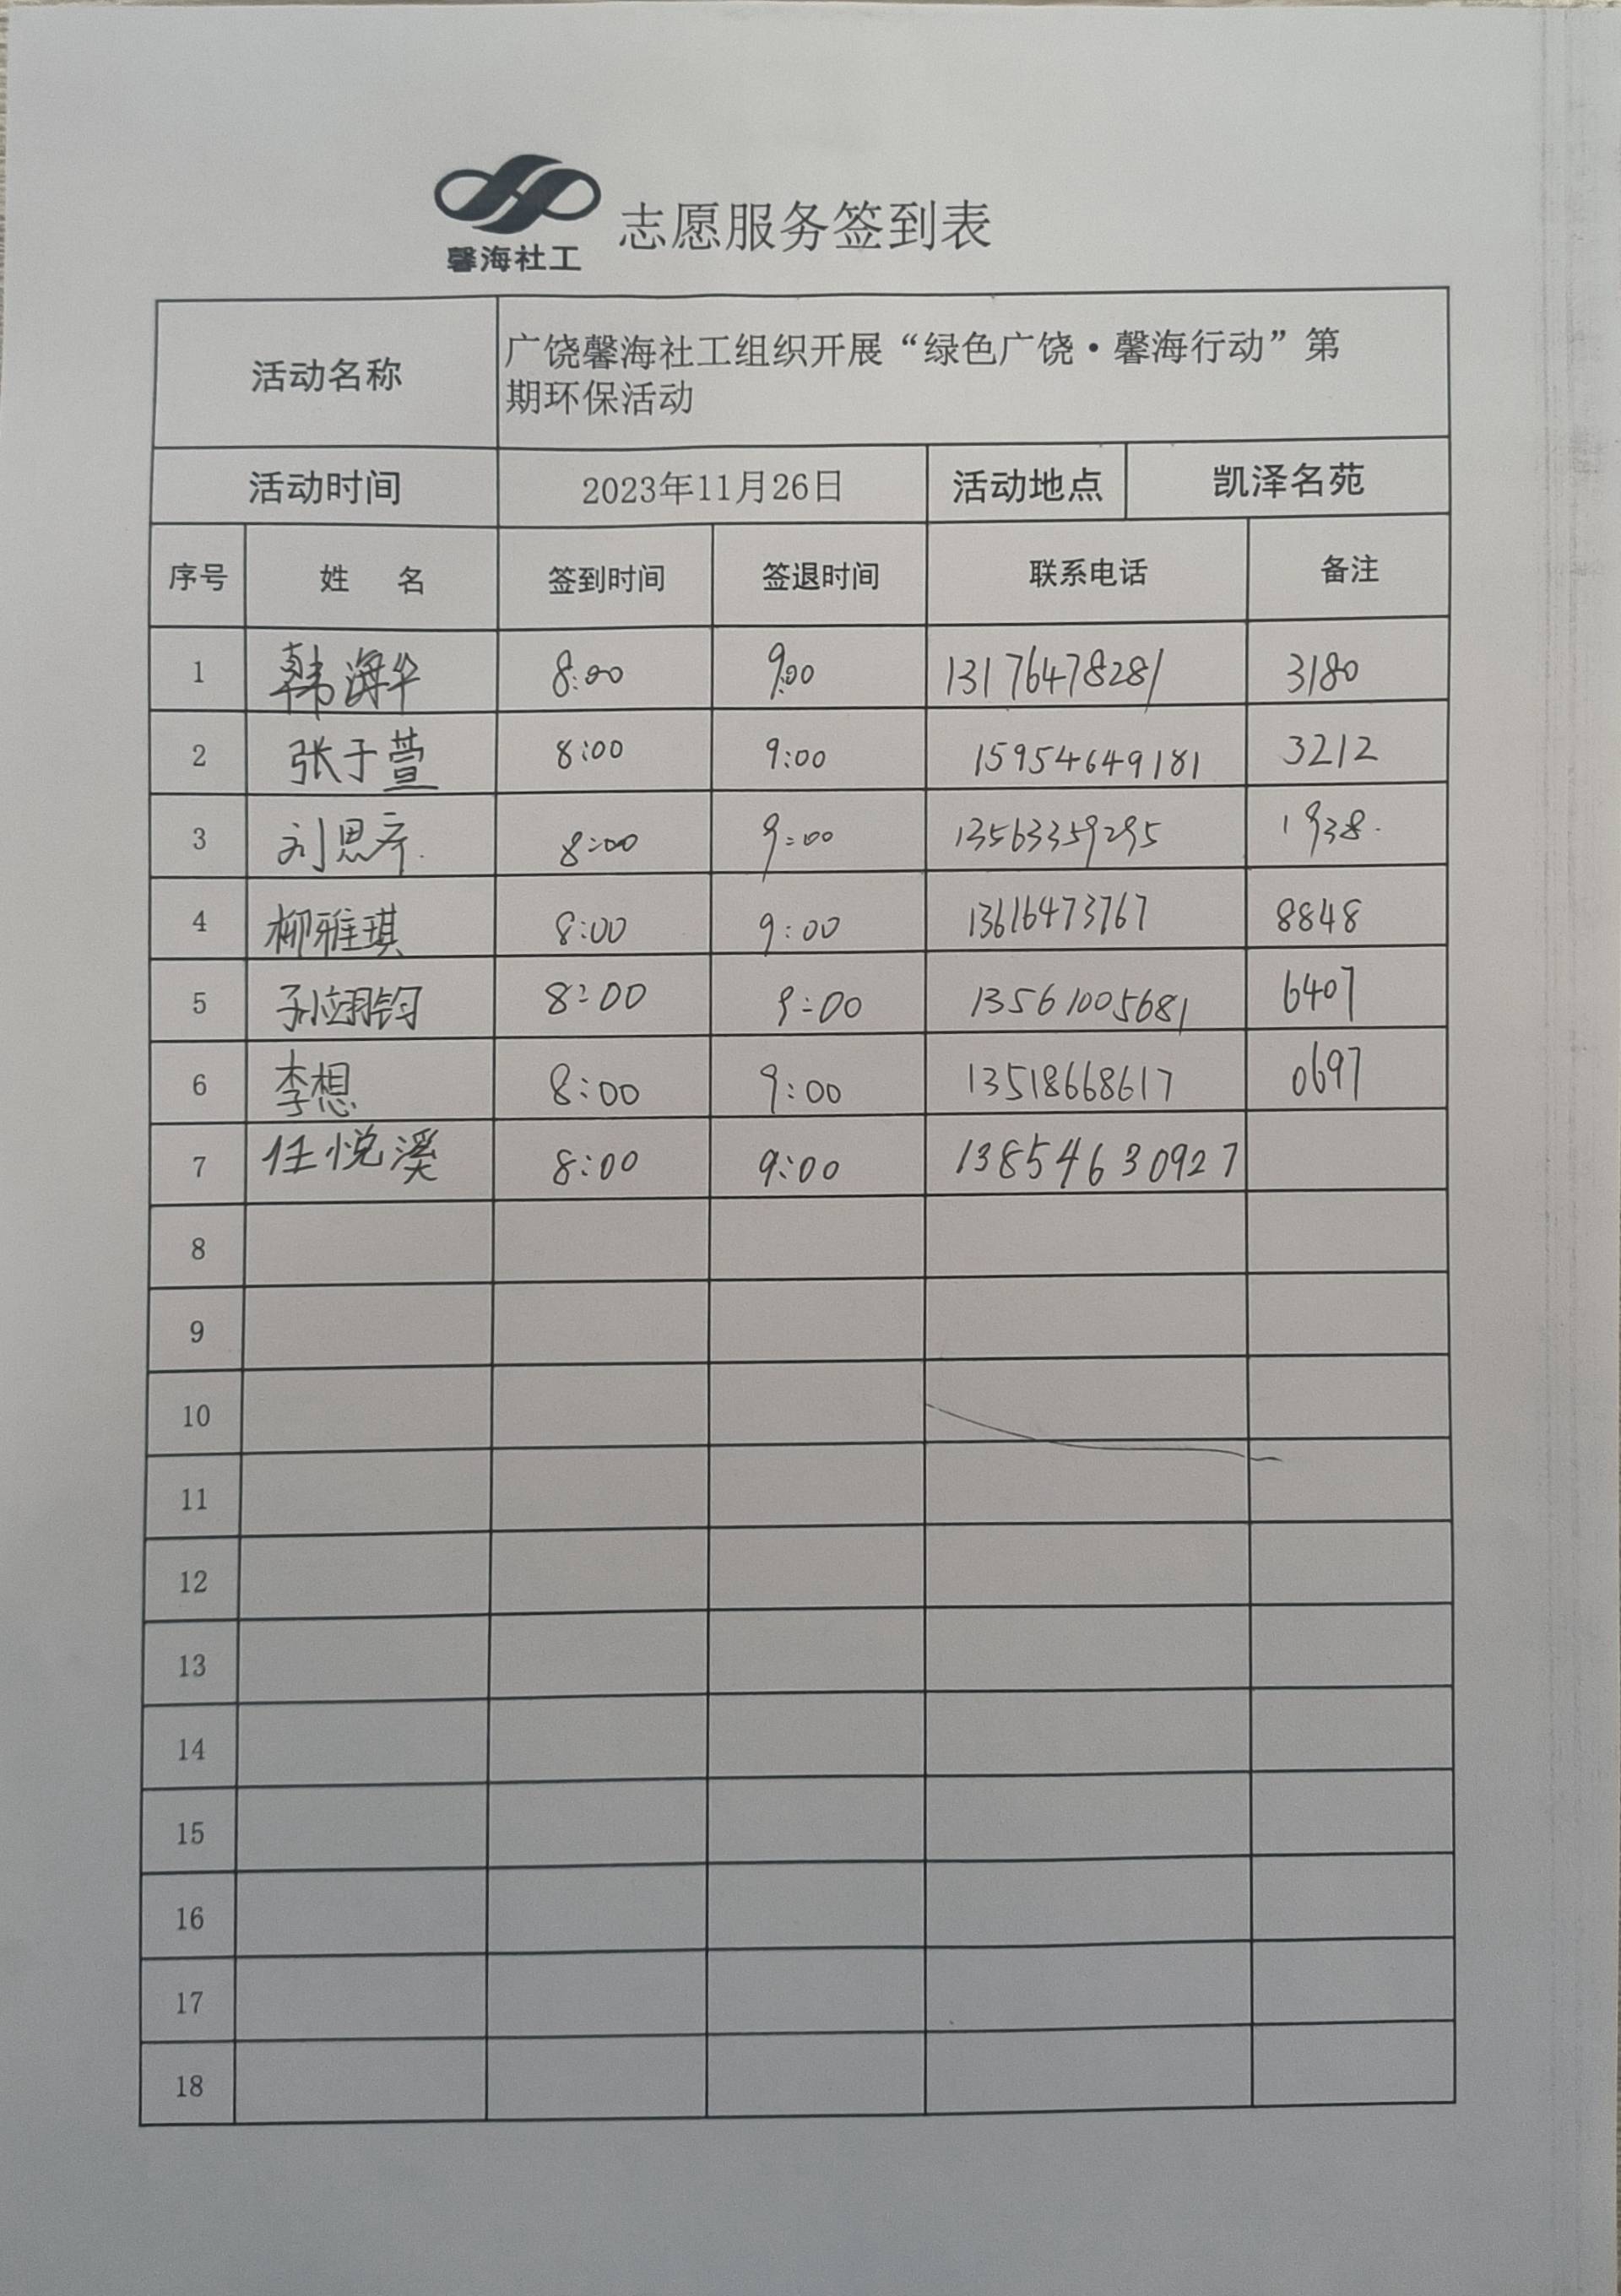 馨海社工 志愿服务签到表
活动名称 广饶馨海社工组织开展“绿色广饶·馨海行动”第
期环保活动
活动时间 2023年11月26日 活动地点 凯泽名苑
序号 姓 名 签到时间 签退时间 联系电话 备注
1 韩海华 8:00 9:00 13176478281 3180
2 张于萱 8:00 9:00 15954649181 3212
3 刘思彦 8:00 9:00 13563359295 1938.
4 柳雅琪 8:00 9:00 13616473767 8848
5 孙翊钧 8:00 9:00 13561005681 6407
6 李想 8:00 9:00 13518668617 0697
7 任悦溪 8:00 9:00 13854630927
8
9
10
11
12
13
14
15
16
17
18